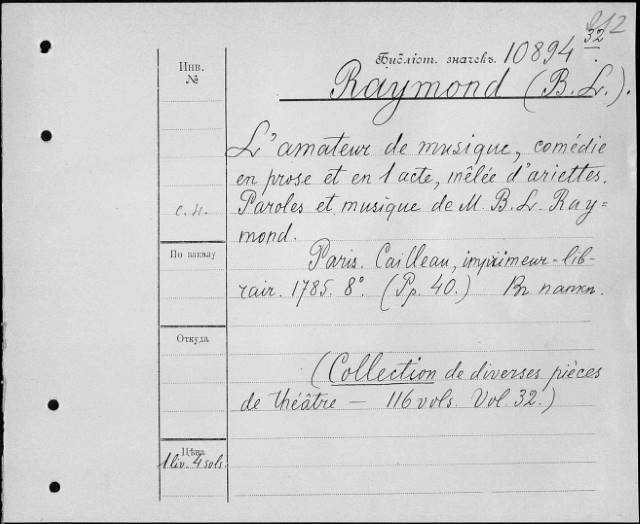 212
Библіот. значекъ. 10894 32.
Инв.
№
Raymond (B. L.).
L'amateur de musique, comédie
en prose et en 1 acte, mêlée d'ariettes.
Paroles et musique de M. B. L. Ray=
mond.
с. н.
По заказу
Paris. Cailleau, imprimeur-lib-
rair. 1785. 8°. (Pp. 40.) Въ папкѣ.
Откуда
(Collection de diverses pièces
de théâtre — 116 vols. Vol. 32.)
Цѣна
1 liv. 4 sols.